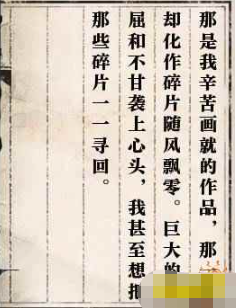 那是我辛苦画就的作品，那
却化作碎片随风飘零。巨大的
屈和不甘袭上心头，我甚至想把
那些碎片一一寻回。